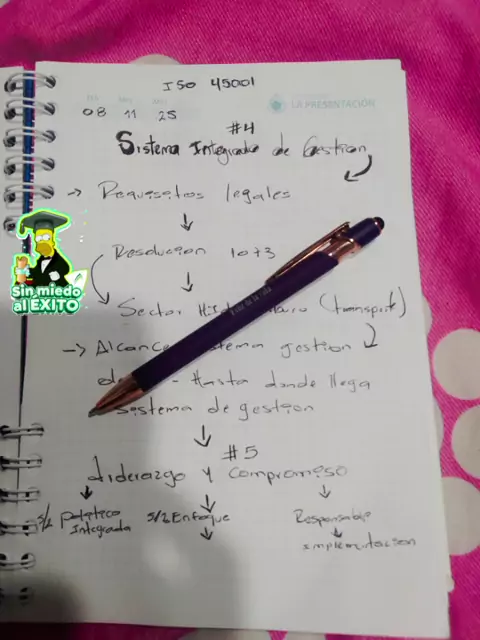 ISO 45001
LA PRESENTACIÓN
08 11 25
#4
Sistema Integrado de Gestion
→ Requisitos legales
Resolucion 1073
Sector (transporte)
→ Alcance sistema gestion
- Hasta donde llega
sistema de gestion
#5
Liderazgo y compromiso
Politica Integrada
Enfoque
Responsable
implementacion
Sin miedo
al EXITO